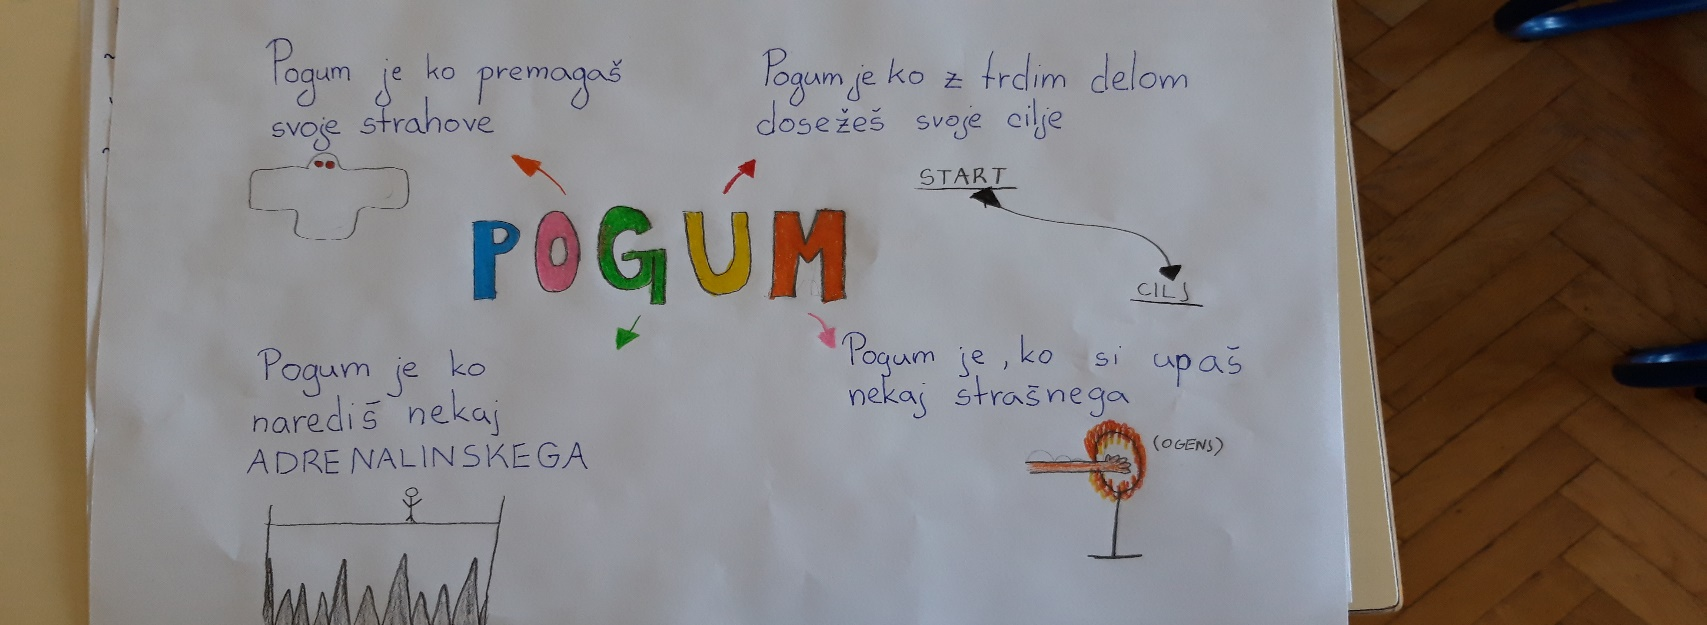 Pogum je ko premagaš
svoje strahove
Pogum je ko z trdim delom
dosežeš svoje cilje
START
CILJ
POGUM
Pogum je ko
narediš nekaj
ADRENALINSKEGA
Pogum je, ko si upaš
nekaj strašnega
(OGENS)